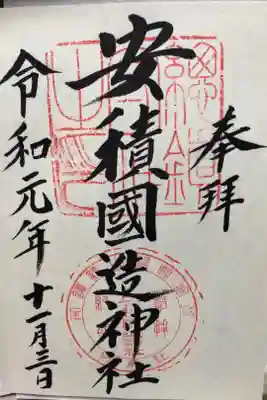 奉拝
安積國造神社
令和元年十一月三日